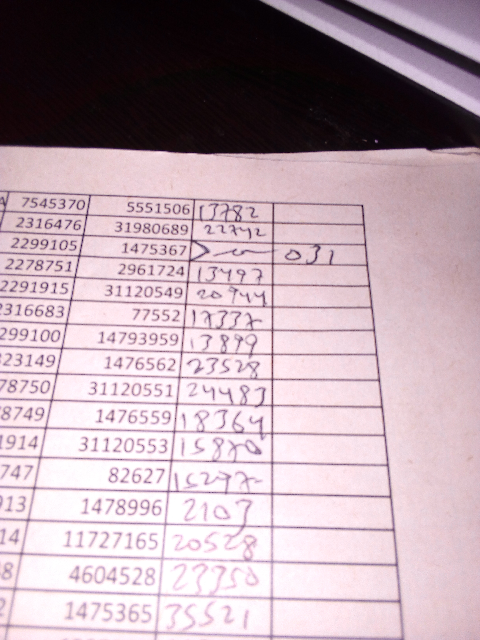 A 7545370 5551506 13782
2316476 31980689 22742
2299105 1475367 031
2278751 2961724 13497
2291915 31120549 20944
2316683 77552 17337
299100 14793959 13899
323149 1476562 23528
78750 31120551 24483
8749 1476559 18364
1914 31120553 15870
747 82627
913 1478996 2103
14 11727165 20528
8 4604528 23350
2 1475365 35521